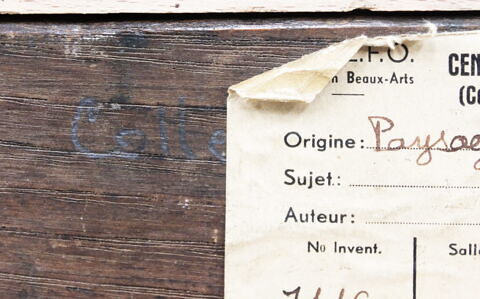 .F.O.
CEN
Beaux-Arts
(Co
Colle
Origine: Paysag
Sujet:
Auteur:
No Invent.
Salle